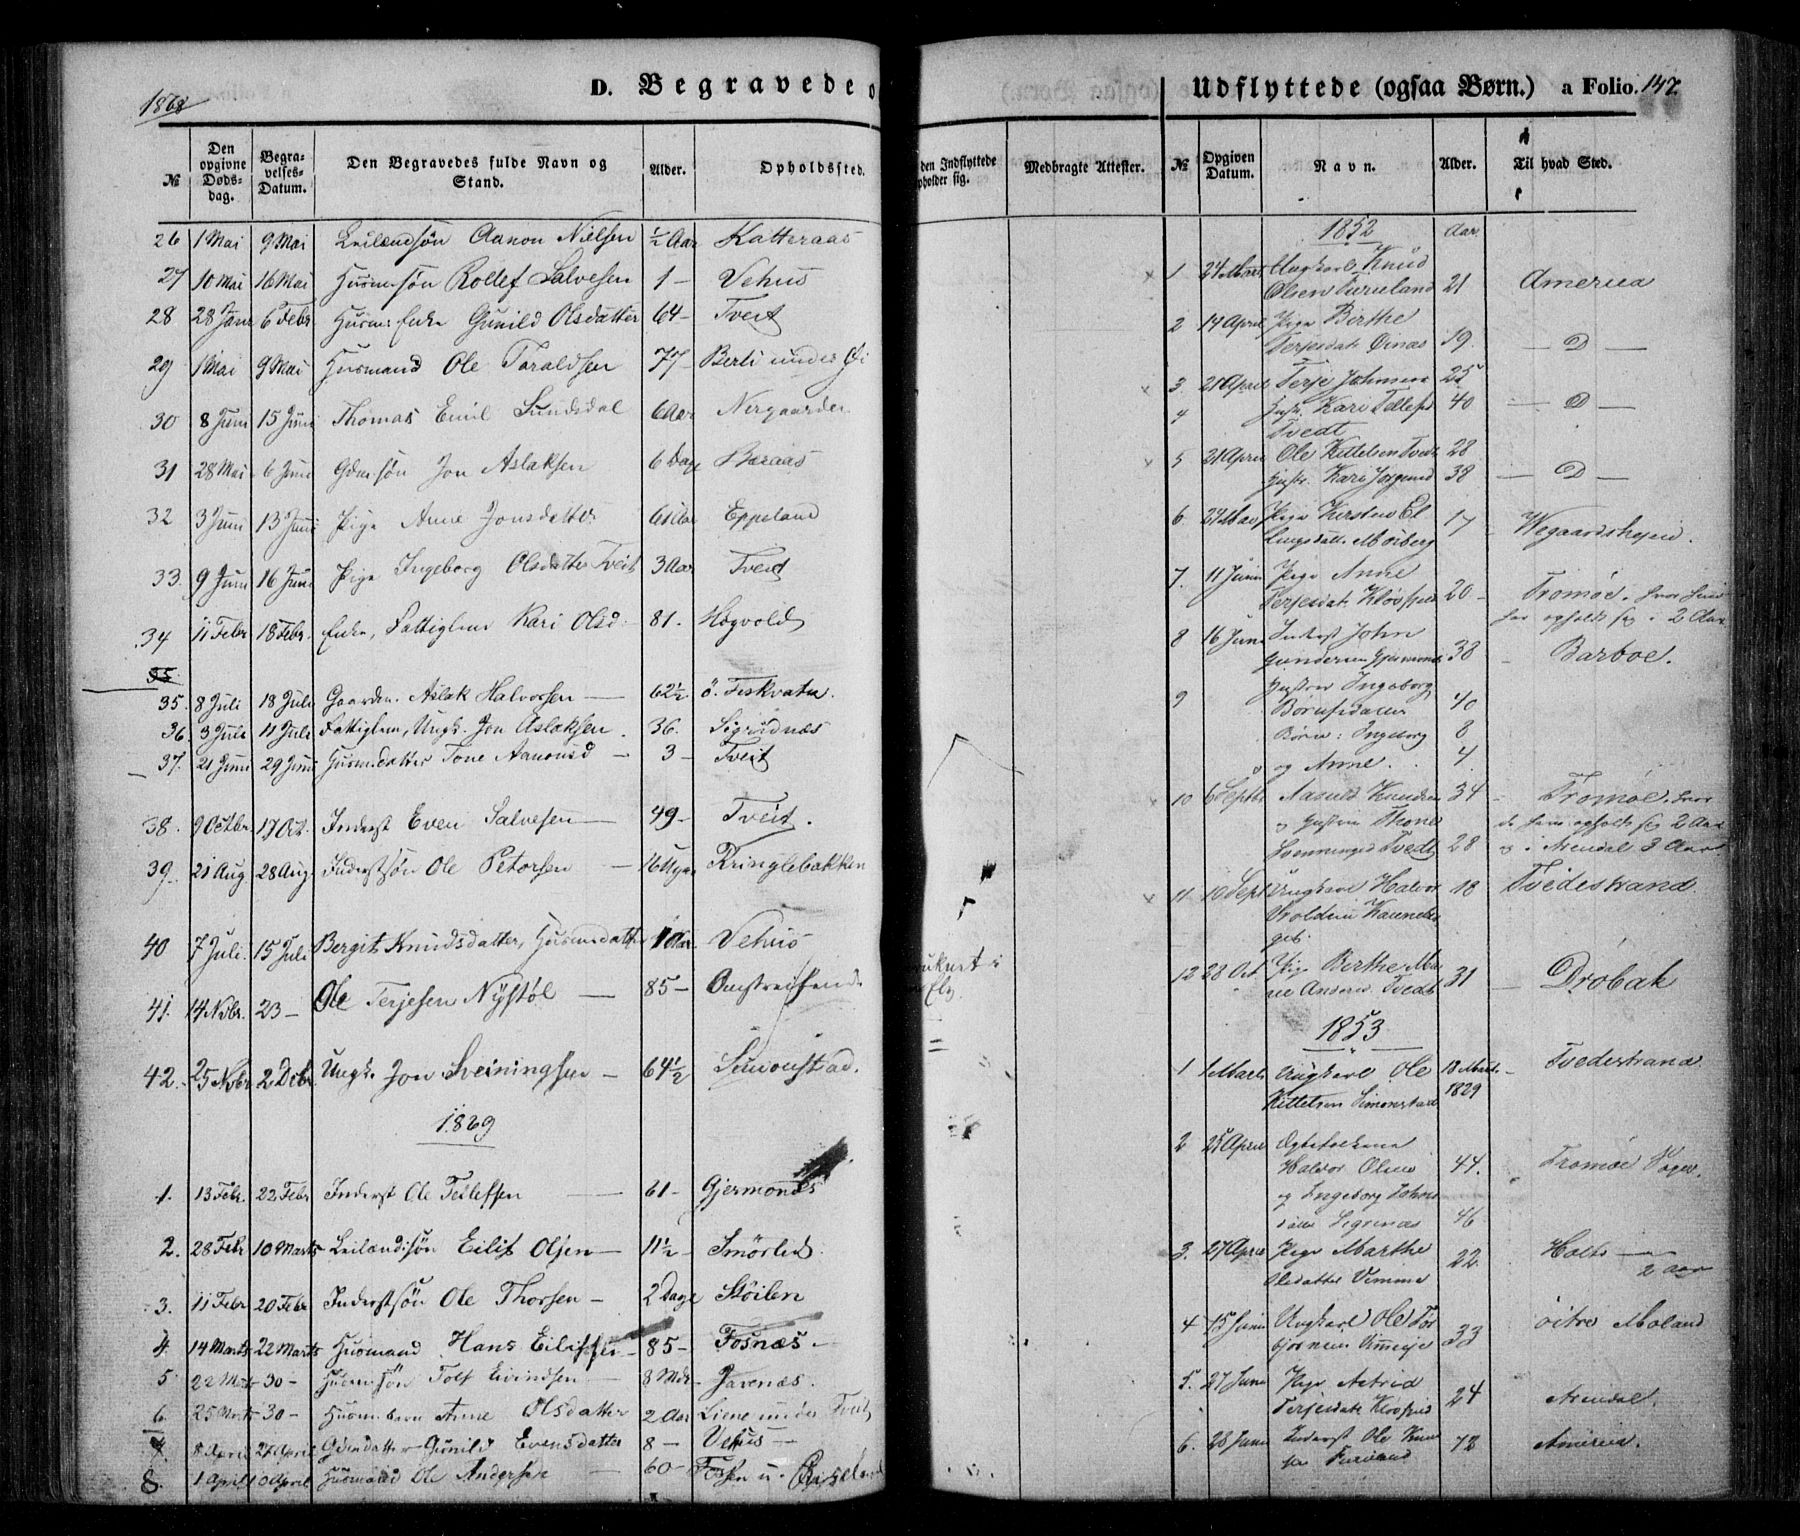 1868
D. Begravede o
№ Den opgivne Døds-dag. Begra-velses-Datum. Den Begravedes fulde Navn og Stand. Alder. Opholdssted.
26 1 Mai 9 Mai Leilændsøn Aanon Nielsen ½ Aar Katteraas
27 10 Mai 16 Mai Husm.søn Rollef Salvesen 1 - Vehus
28 28 Janr 6 Febr Husms Enke Gunild Olsdatter 64 - Tveit
29 1 Mai 9 Mai Husmand Ole Taraldsen 77 - Berli under
30 8 Juni 15 Juni Thomas Emil Sundsdal 6 Aar Nergaarden
31 28 Mai 6 Juni Gdmsøn Jon Aslaksen 6 Dage Baraas
32 3 Juni 13 Juni Pige Anne Jonsdatter Aar Eppeland
33. 9 Juni 16 Juni Pige Ingeborg Olsdatter Tveit 3 Aar Tveit
34 11 Febr 18 Febr. Enke, Fattiglem Kari Olsd. 81. Hægvold
35
35. 8 Juli 18 Juli Gaardm. Aslak Halvorsen — 62½. ö. Fiskvatn.
36. 3 Juli 11 Juli Fattiglem, Ungk. Jon Aslaksen. 36. Sigridnæs
37. 21 Juni 29 Juni Husmdatter Tone Aanonsd — 3 — Tveit
38. 9 Octbr. 17 Oct. Inderst Even Salvesen — 49 - Tveit.
39. 21 Aug 28 Aug. Inderstsøn Ole Petersen — 16 Uger Kringlebakken
40 7 Juli 15 Juli Bergit Knudsdatter, Husmdatter 1 Aar. Vehus
41. 14 Nvbr. 23 - Ole Terjesen Nystøl — 85 - Omstreifende
42. 25 Nvbr 2 Dcbr Ungk. Jon Sveiningsen — 64½ Simonstad.
1869
1. 13 Febr. 22 Febr Inderst Ole Tellefsen — 61 - Gjermonnes
2. 28 Febr 10 Marts Leilændsøn Eilif Olsen — 11½ Smörlid.
3. 11 Febr 20 Febr Inderstsøn Ole Thorsen — 2 Dage Støilen
4 14 Marts 22 Marts Husmand Hans Eilifsen — 85 - Fosnæs -
5 22 Mrts 30 - Husmsøn Tolf Eivindsen 8 Mdr. Gavenæs.
6. 25 Marts 30 - Husm.barn Anne Olsdatter 2 Aar Liene under Tveit
7. 8 April 27 April Gdmdatter Gunild Evensdatter 8 - Vehus —
8. 1 April 10 April Husmand Ole Andersen — 60 - Fossen u.
Udflyttede (ogsaa Børn.) a Folio. 147.
den Indflyttede opholder sig. Medbragte Attester. № Opgiven Datum. Navn. Alder. Til hvad Sted.
1852 Aar.
1 24 Marts Ungkarl Knud
Olsen Fureland 21 America
2 14 April Pige Birthe
Terjesdatr Ørnæs 19. — D —
3. 21 April Terje Johnsen 25
4 Hustr. Kari Tellefsd 40 — D —
Tvedt
5 21 April Ole Kittelsen Tvedt 28
Hustr. Kari Jorgund 38 — D —
6. 27 Mai Pige Kirsten El
lingsdatt. Moiberg 17 Wegaardsheien.
7. 11 Juni Pige Anne
Terjesdatr 20 - Tromøe. hvor hun
har opholdt sig i 2 Aar
8 16 Juni Inderst John
Gundersen Gjermonds 38 Barboe.
9 Hustrue Ingeborg
Børnfsdatter 40
Børn: Ingeborg 8
og Anne. 4.
10 6 Septbr Aasuld Knudsen 34 Tromøe, hvor
og Hustrue Thone de have opholdt sig 2 Aar
Svenningsd Tvedt 28 og i Arendal 3 Aar
11 10 Sept Ungkarl Halvor 18 Tvedestrand
12 28 Oct Pige Birthe Ma
rie Anders. Tvedt 31 Drøbak
1853
1 1 Marts Ungkarl Ole 18 Marts Tvedestrand
Kittelsen Simonstad 1829
2 25 April Ægtefolkene
Haldor Olsen 44. Tromøe Sogn.
og Ingeborg Johns
datter Sigrenæs 46
3. 27 April Pige Marthe 22. Holts —
Olsdatter Vimme 2 Aar
4 15 Juni Ungkarl Ole Tor
bjørnsen Ummeje 33 öitre Moland
5. 27 Juni Pige Astrid
Terjesdatr 24 Arendal.
6. 28 Juni Inderst Ole Knud
sen Fureland 72 America.